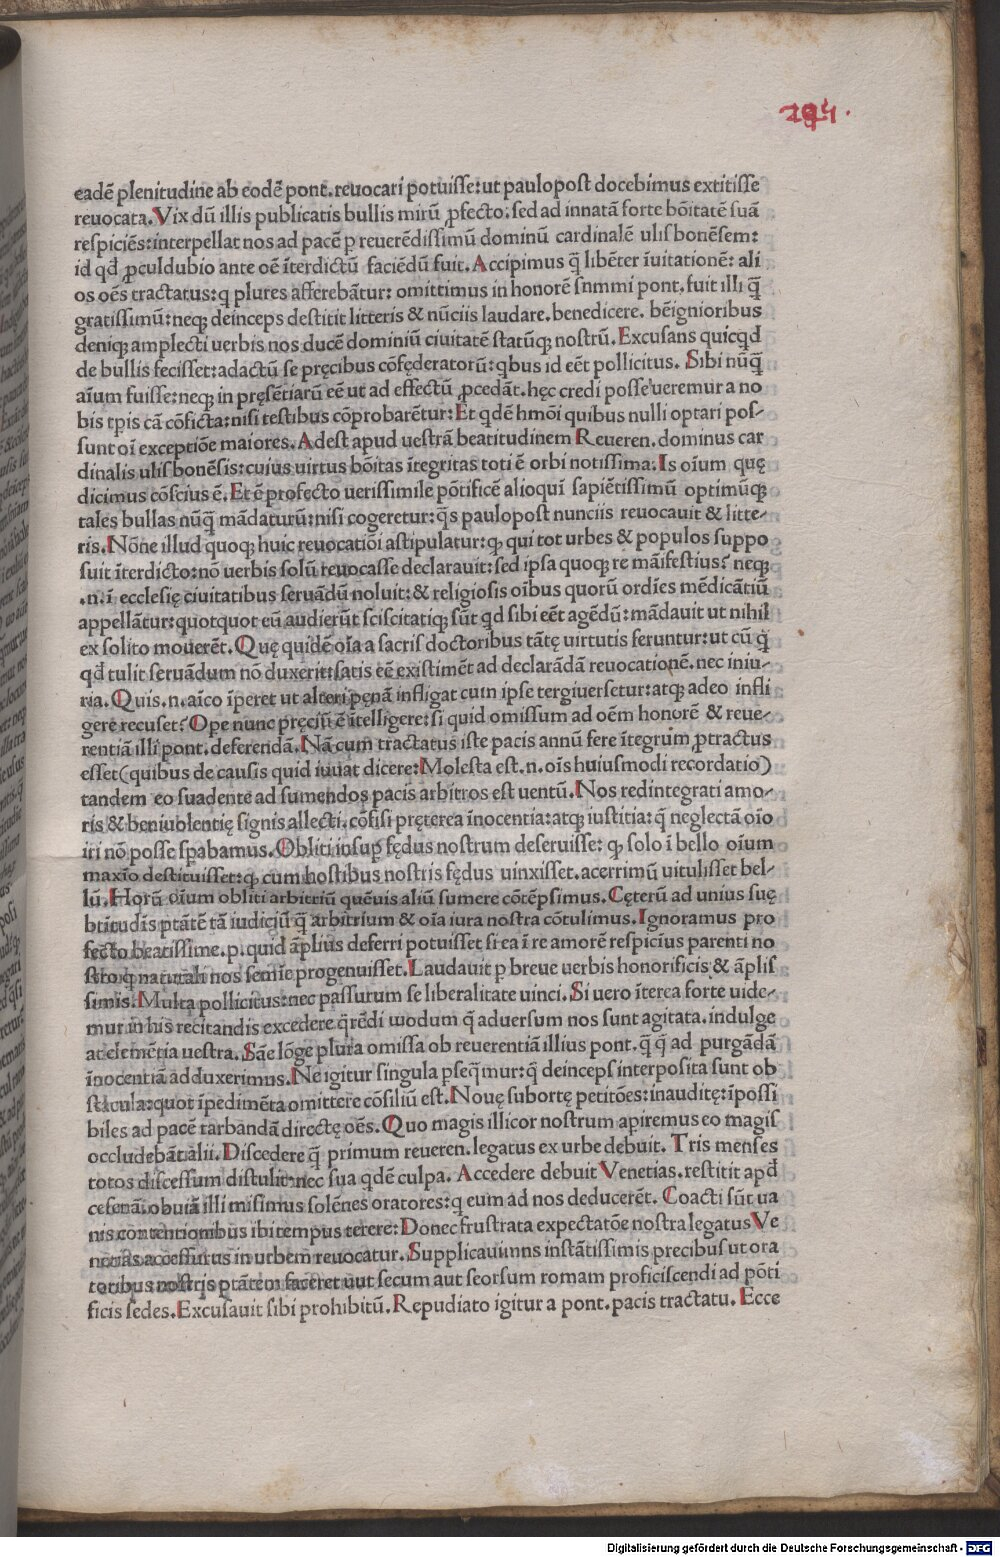 294.
eadē plenitudine ab eodē pont. reuocari potuisse: ut paulopost docebimus extitisse
reuocata. Vix dū illis publicatis bullis mirū ꝓfecto: sed ad innatā forte bōitatē suā
respiciēs: interpellat nos ad pacē ꝑ reuerēdissimū dominū cardinalē ulisbonēsem:
id qđ ꝓculdubio ante oē īterdictū faciēdū fuit. Accipimus q̄ libēter īuitationē: ali
os oēs tractatus: q plures afferebātur: omittimus in honorē snmmi pont. fuit illi q̄
gratissimū: neqꝫ deinceps destitit litteris & nūciis laudare. benedicere. bēignioribus
deniqꝫ amplecti uerbis nos ducē dominiū ciuitatē statūqꝫ nostrū. Excusans quicqđ
de bullis fecisset: adactū se pręcibus cōfęderatorū: qbus id eēt pollicitus. Sibi nūq̄
aīum fuisse: neqꝫ in pręsētiarū eē ut ad effectū ꝓcedāt. hęc credi posse ueremur a no
bis tꝑis cā cōficta: nisi testibus cōprobarētur: Et qdē hmōi quibus nulli optari pos-
sunt oī exceptiōe maiores. Adest apud uestrā beatitudinem Reueren. dominus car
dinalis ulisbonēsis: cuius uirtus bōitas ītegritas toti ē orbi notissima. Is oīum quę
dicimus cōscius ē. Et ē profecto uerissimile pōtificē alioquī sapiētissimū optimūqꝫ
tales bullas nūq̄ mādaturū: nisi cogeretur: q̄s paulopost nunciis reuocauit & litte-
ris. Nōne illud quoqꝫ huic reuocatiōi astipulatur: ꝙ qui tot urbes & populos suppo
suit īterdicto: nō uerbis solū reuocasse declarauit: sed ipsa quoqꝫ re māifestius? neqꝫ
.n. ī ecclesię ciuitatibus seruādū noluit: & religiosis oībus quorū ordīes mēdicātiū
appellātur: quotquot eū audierūt sciscitatiqꝫ sūt qđ sibi eēt agēdū: mādauit ut nihil
ex solito mouerēt. Quę quidē oīa a sacris doctoribus tātę uirtutis feruntur: ut cū q̄
qđ tulit seruādum nō duxerit: satis eē existimēt ad declarādā reuocationē. nec iniu-
ria. Quis .n. aīco īperet ut alteri pęnā infligat cum ipse tergiuersetur: atqꝫ adeo infli
gere recuset? Ope nunc pręciū ē ītelligere: si quid omissum ad oēm honorē & reue-
rentiā illi pont. deferendā. Nā cum tractatus iste pacis annū fere ītegrum ꝓtractus
esset (quibus de causis quid iuuat dicere: Molesta est .n. oīs huiusmodi recordatio)
tandem eo suadente ad sumendos pacis arbitros est uentū. Nos redintegrati amo-
ris & beniuolentię signis allecti. cōfisi pręterea īnocentia: atqꝫ iustitia: q̄ neglectā oīo
iri nō posse sꝑabamus. Obliti insuꝑ fędus nostrum deseruisse: ꝙ solo ī bello oīum
maxīo destituisset: ꝙ cum hostibus nostris fędus uinxisset. acerrimū uitulisset bel-
lū. Horū oīum obliti arbitriū quēuis aliū sumere cōtēpsimus. Cęterū ad unius suę
btitudīs ptātē tā iudiciū q̄ arbitrium & oīa iura nostra cōtulimus. Ignoramus pro
fecto beatissime .p. quid āplius deferri potuisset si ea ī re amorē respicius parenti no
stro q̄ naturali nos semīe progenuisset. Laudauit ꝑ breue uerbis honorificis & āplis
simis. Multa pollicitus: nec passurum se liberalitate uinci. Si uero īterea forte uide-
mur in his recitandis excedere q̄rēdi modum q̄ aduersum nos sunt agitata. indulge
at clemētia uestra. Sāe lōge plura omissa ob reuerentiā illius pont. q̄ q̄ ad purgādā
īnocentiā adduxerimus. Ne igitur singula ꝑseq̄mur: q̄ deinceps interposita sunt ob
stacula: quot īpedimēta omittere cōsiliū est. Nouę subortę petitōes: inauditę: īpossi
biles ad pacē tarbandā directę oēs. Quo magis illicor nostrum apiremus eo magis
occludebāt alii. Discedere q̄ primum reueren. legatus ex urbe debuit. Tris menses
totos discessum distulit: nec sua qdē culpa. Accedere debuit Venetias. restitit apđ
cesenā. obuiā illi misimus solēnes oratores: q eum ad nos deducerēt. Coacti sūt ua
nis contentionibus ibi tempus terere: Donec frustrata expectatōe nostra legatus Ve
netias accessurus in urbem reuocatur. Supplicauimns instātissimis precibus ut ora
toribus nostris ptātem faceret aut secum aut seorsum romam proficiscendi ad pōti
ficis sedes. Excusauit sibi prohibitū. Repudiato igitur a pont. pacis tractatu. Ecce
Digitalisierung gefördert durch die Deutsche Forschungsgemeinschaft - DFG